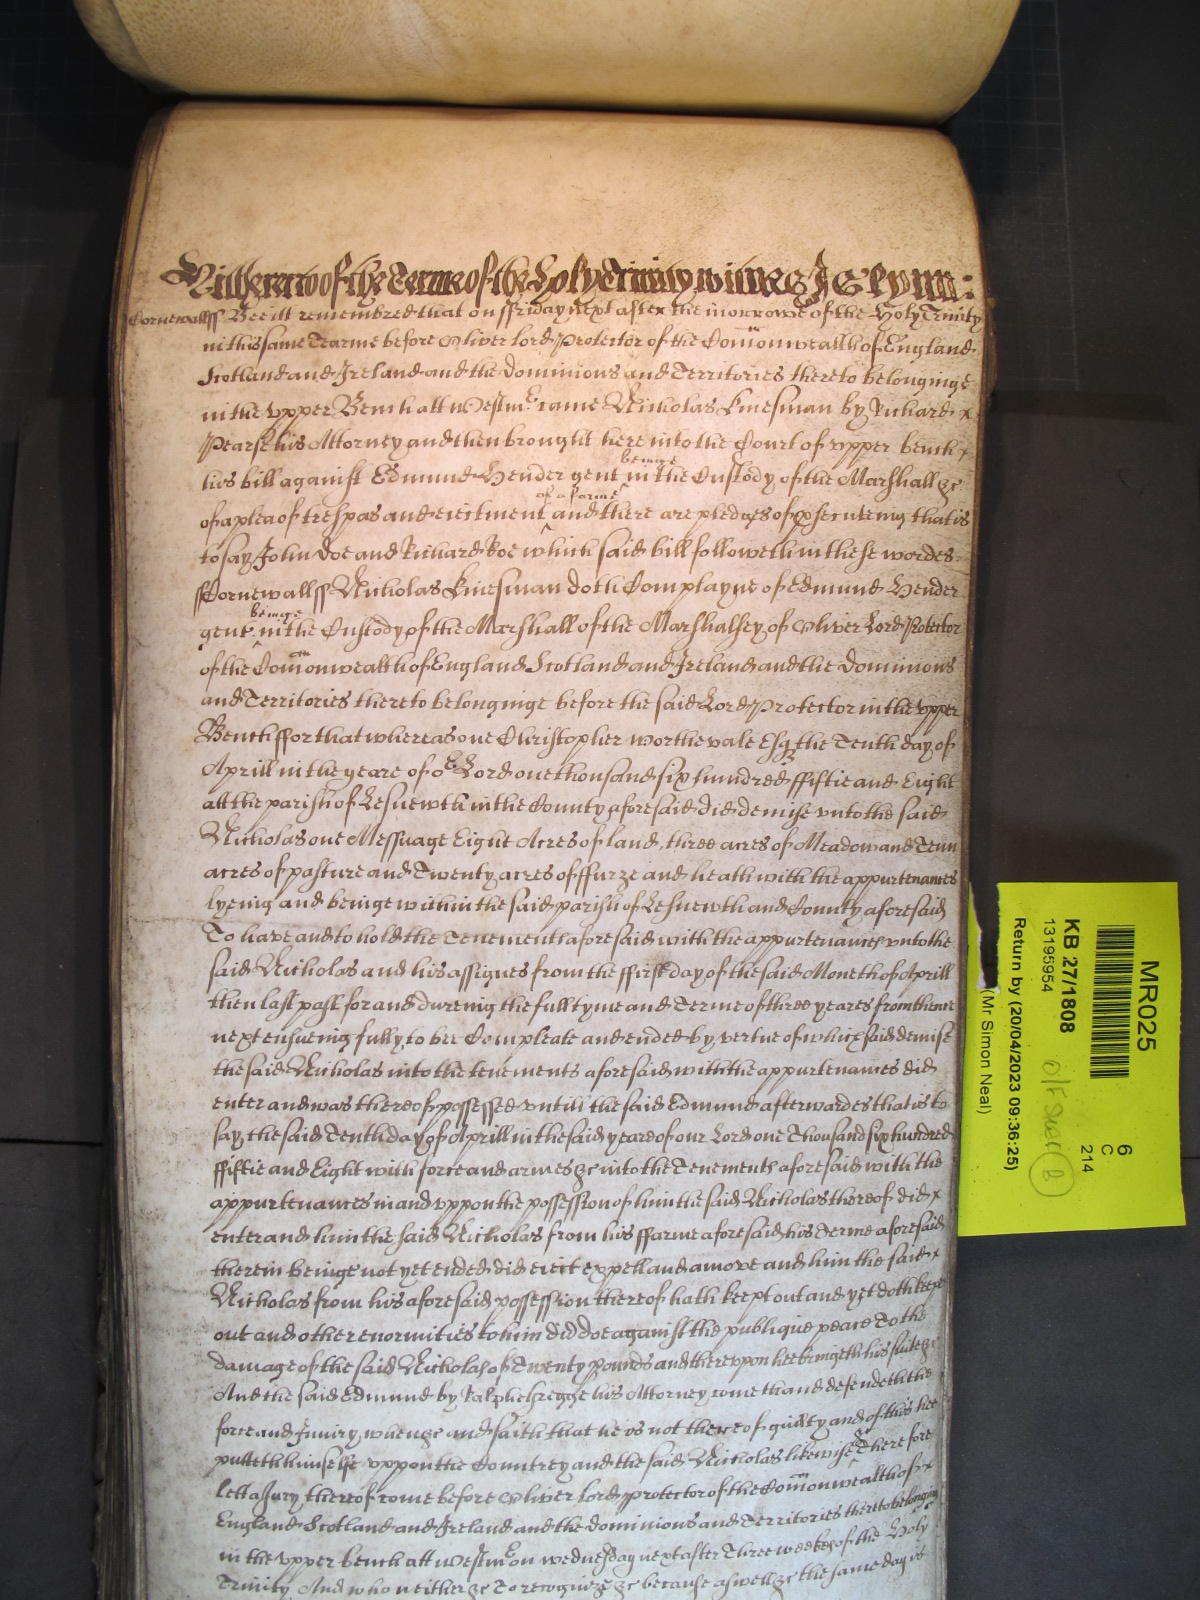 Wittnes of the Terme of the Holy Trinity wittnes
Cornewall ss Bee itt remembred that on ffriday next after the morrowe of the Holy Trinity
in this same Tearme before Oliver Lord Protector of the Com̄onwealth of England
Scotland and Ireland and the dominions and Territories thereto belonginge
in the vpper Bench att Westmr came Nicholas Kinesman by Richard x
Pearse his Attorney and then brought here into the Court of vpper bench x
his bill against Edmund Hender gent beinge in the Custody of the Marshall &c
of a plea of trespas and eiectment of a farme and there are pledges of prsecuteing that is
to say John Doe and Richard Roe which said bill followeth in these wordes
ss Cornewall ss Nicholas Kinesman doth Complayne of Edmund Hender
gent beinge in the Custody of the Marshall of the Marshalsey of Oliver Lord Protector
of the Com̄onwealth of England Scotland and Ireland and the dominions
and Territories thereto belonginge before the said Lord Protector in the vpper
Bench ffor that whereas one Christopher Worthevale Esqr the Tenth day of
Aprill in the yeare of or Lord one thousand six hundred ffiftie and Eight
att the parish of Lesnewth in the County aforesaid did demise vnto the said
Nicholas one Messuage Eight Acres of land, three acres of Meadow and Tenn
acres of pasture and Twenty acres of ffurze and heath with the appurtenances
lyeing and beinge within the said parish of Lesnewth and County aforesaid
To have and to hold the Tenements aforesaid with the appurtenances vnto the
said Nicholas and his assignes from the ffirst day of the said Moneth of Aprill
then last past for and dureing the full tyme and Terme of three yeares from thence
next ensueing fully to bee Compleate and ended by vertue of which said demise
the said Nicholas into the tenements aforesaid with the appurtenances did
enter and was thereof possessed vntill the said Edmund afterwardes that is to
say the said Tenth day of Aprill in the said yeare of our Lord one Thousand six hundred
ffiftie and Eight with force and armes &c into the Tenements aforesaid with the
appurtenances in and vppon the possession of him the said Nicholas thereof did x
enter and him the said Nicholas from his ffarme aforesaid his Terme aforesaid
therein beinge not yet ended did eiect expell and amove and him the said x
Nicholas from his aforesaid possession thereof hath kept out and yet doth keepe
out and other enormities to him did doe against the publique peace To the
damage of the said Nicholas of Twenty pounds and therevpon hee bringeth his suite &c
And the said Edmund by Ralph Gregge his Attorney cometh and defendeth the
force and Iniury when &c and saith that he is not thereof guilty and of this hee
putteth himselfe vppon the Countrey and the said Nicholas likewise &c Therefore
lett a Jury thereof come before Oliver Lord protector of the Com̄onwealth of x
England Scotland and Ireland and the dominions and Territories thereto belonging
in the vpper bench att Westmr on wednesday next after Three weekes of the Holy
Trinity And who neither &c To recognize &c because aswell &c the same day is
MR025
6
C
214
KB 27/1808
13195954
Return by (20/04/2023 09:36:25)
(Mr Simon Neal)